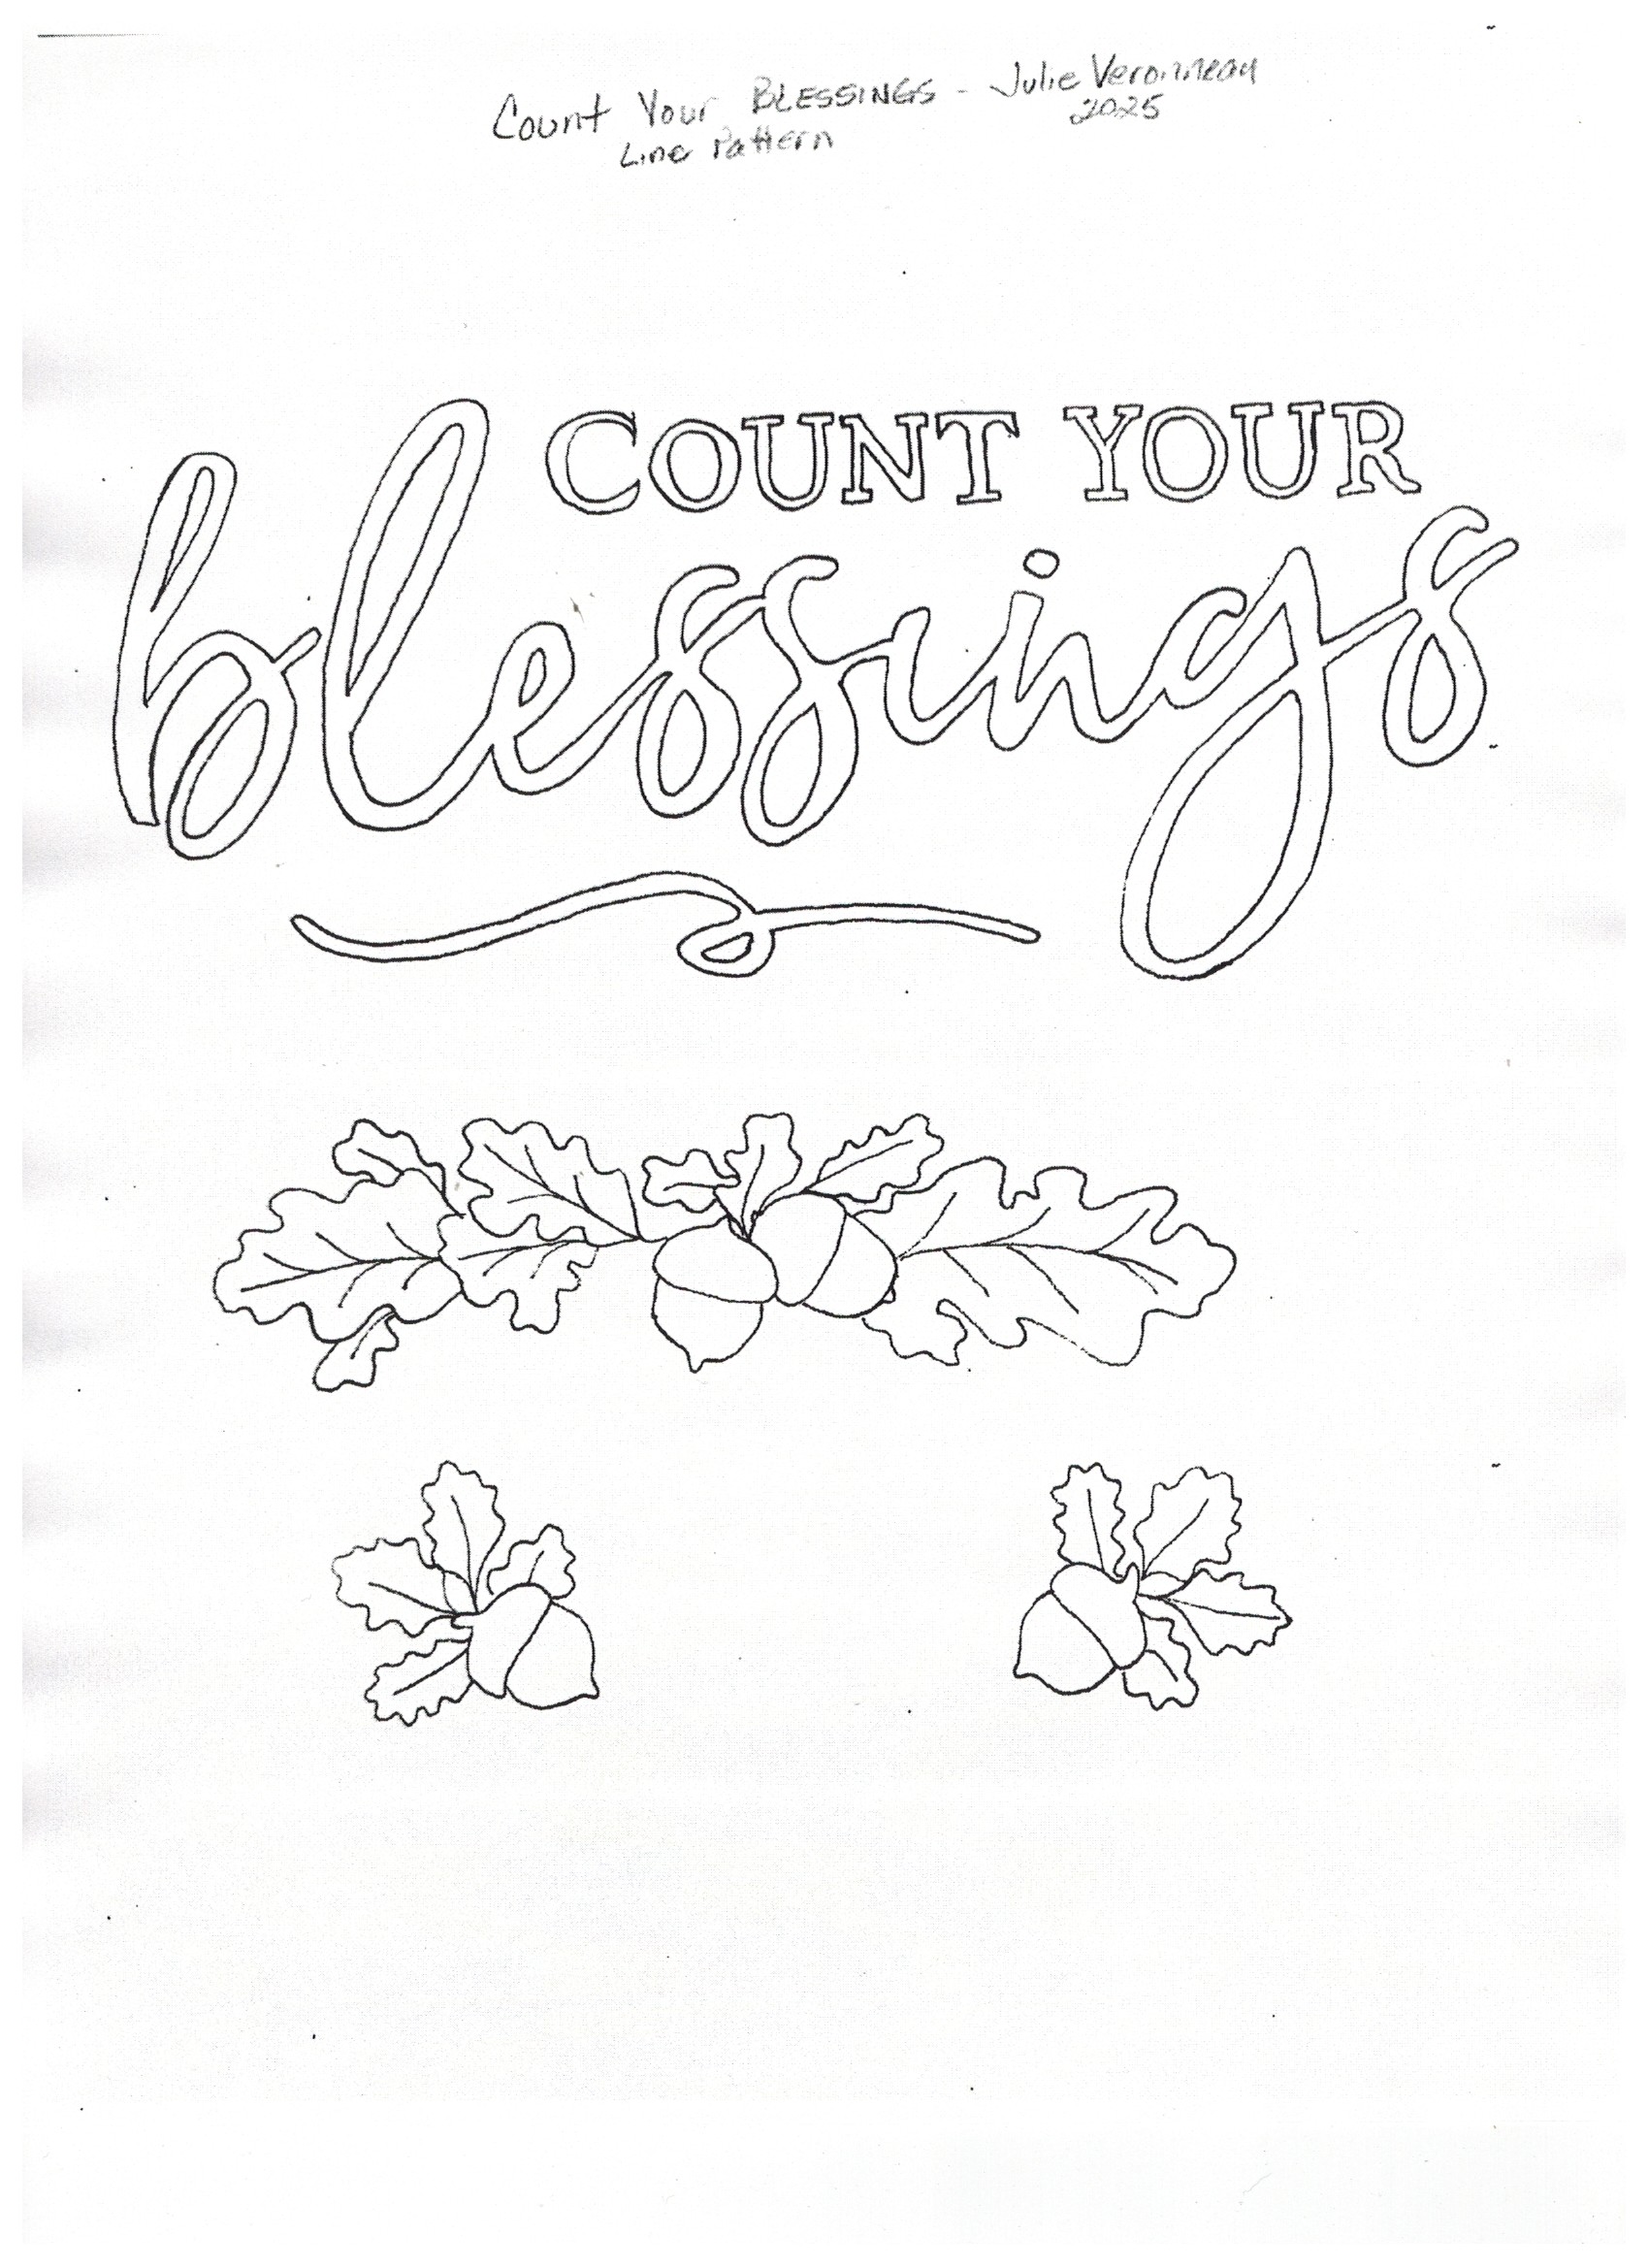 Count Your BLESSINGS - Julie Veronneau
2025
Line Pattern
COUNT YOUR
blessings